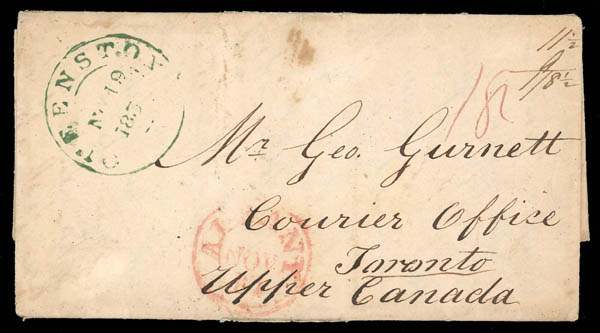 QUEENSTON
NOV 19
183
11½
/8½
18½
Mr. Geo. Gurnett
Courier Office
Toronto
Upper Canada
NOV